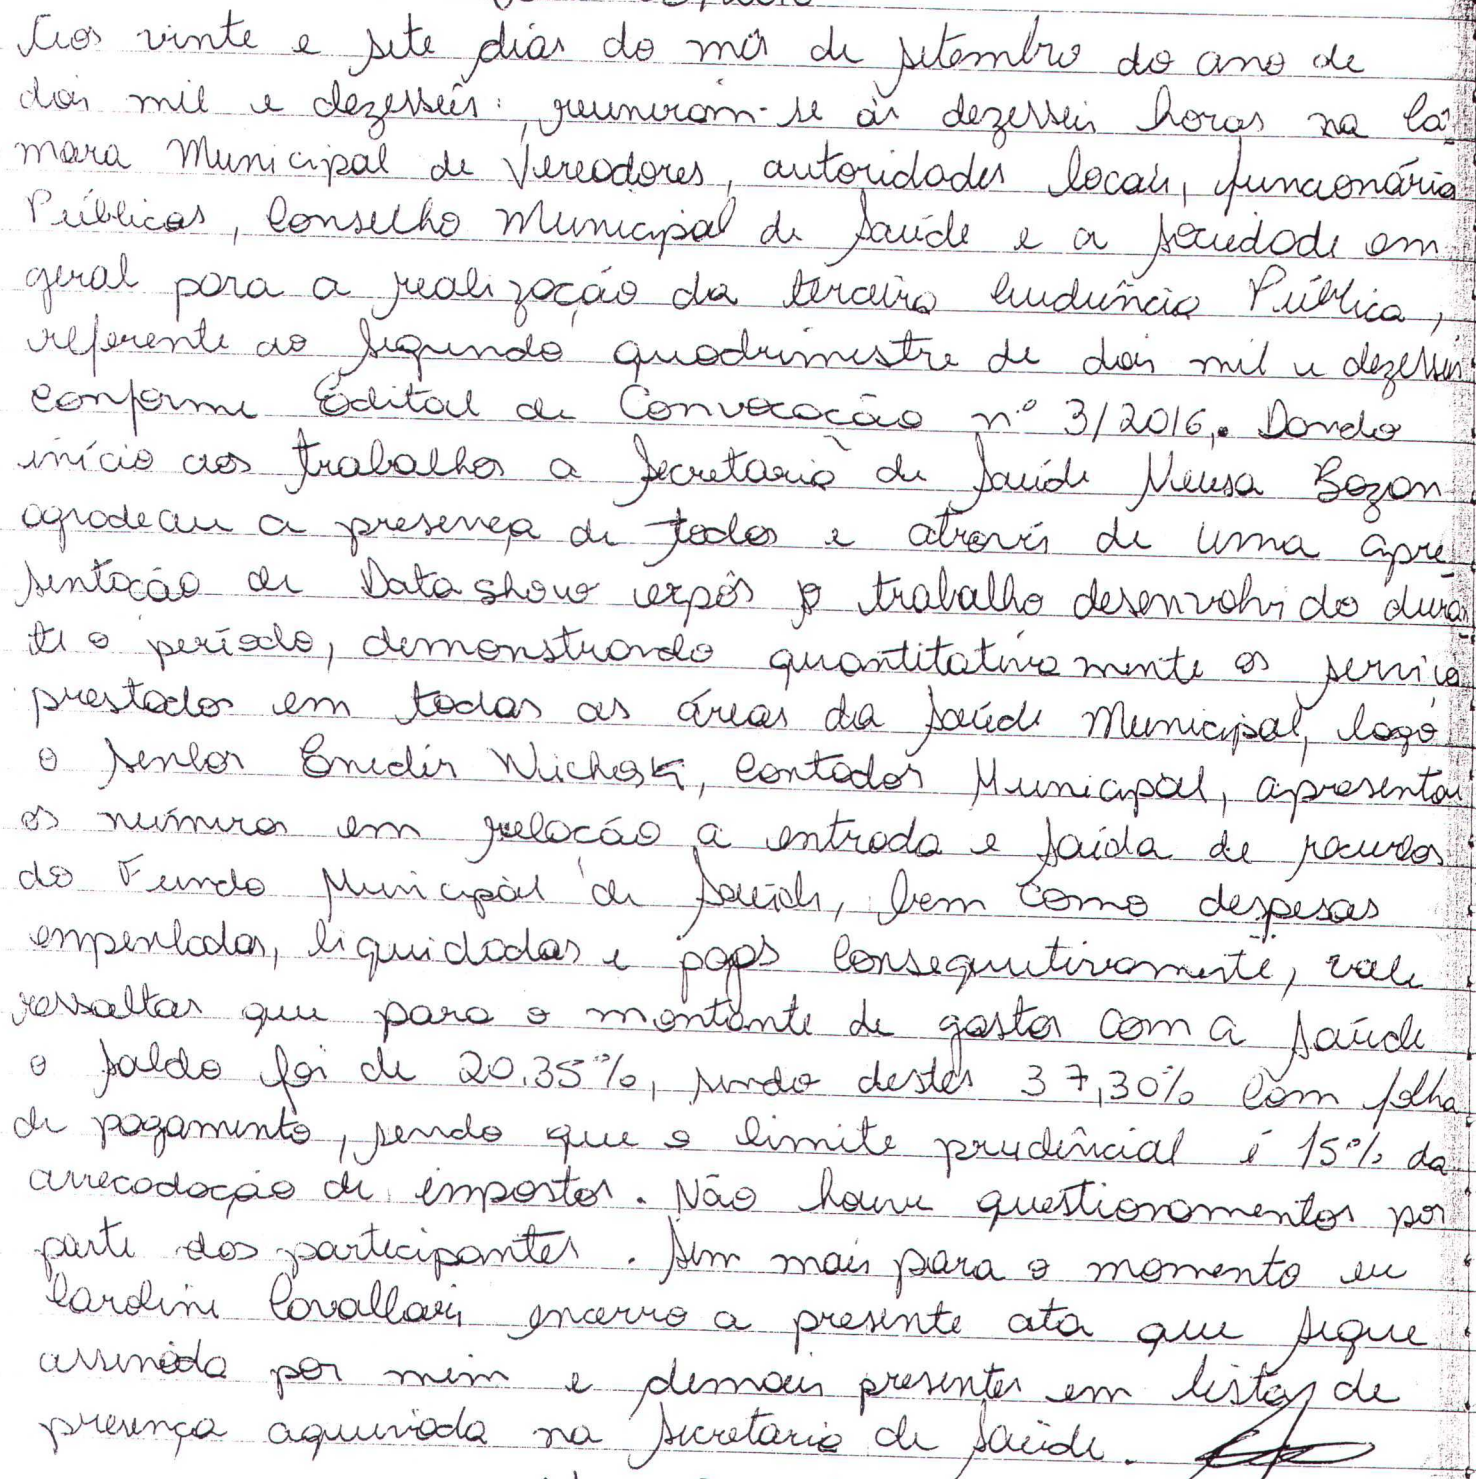 Aos vinte e sete dias do mês de setembro do ano de
dois mil e dezesseis, reuniram-se às dezesseis horas na Câ-
mara Municipal de Vereadores, autoridades locais, funcionários
Públicos, Conselho Municipal de Saúde e a sociedade em
geral para a realização da terceira Audiência Pública,
referente ao segundo quadrimestre de dois mil e dezesseis
conforme Edital de Convocação nº 3/2016. Dando
início aos trabalhos a Secretaria de Saúde Neusa Bozon
agradeceu a presença de todos e através de uma apre
sentação de Data show expôs o trabalho desenvolvido duran
te o período, demonstrando quantitativamente os serviços
prestados em todas as áreas da saúde Municipal, logo
o senhor Enedir Wichoski, Contador Municipal, apresentou
os números em relação a entrada e saída de recursos
do Fundo Municipal de Saúde, bem como despesas
empenhadas, liquidadas e pagas consequitivamente, vale
ressaltar que para o montante de gastos com a saúde
o saldo foi de 20.35%, sendo destes 37,30% com folha
de pagamento, sendo que o limite prudêncial é 15% da
arrecadação de impostos. Não houve questionamentos por
parte dos participantes. Sem mais para o momento eu
Caroline Cavallari, encerro a presente ata que segue
assinada por mim e demais presentes em listas de
presença aquivada na Secretaria de Saúde.